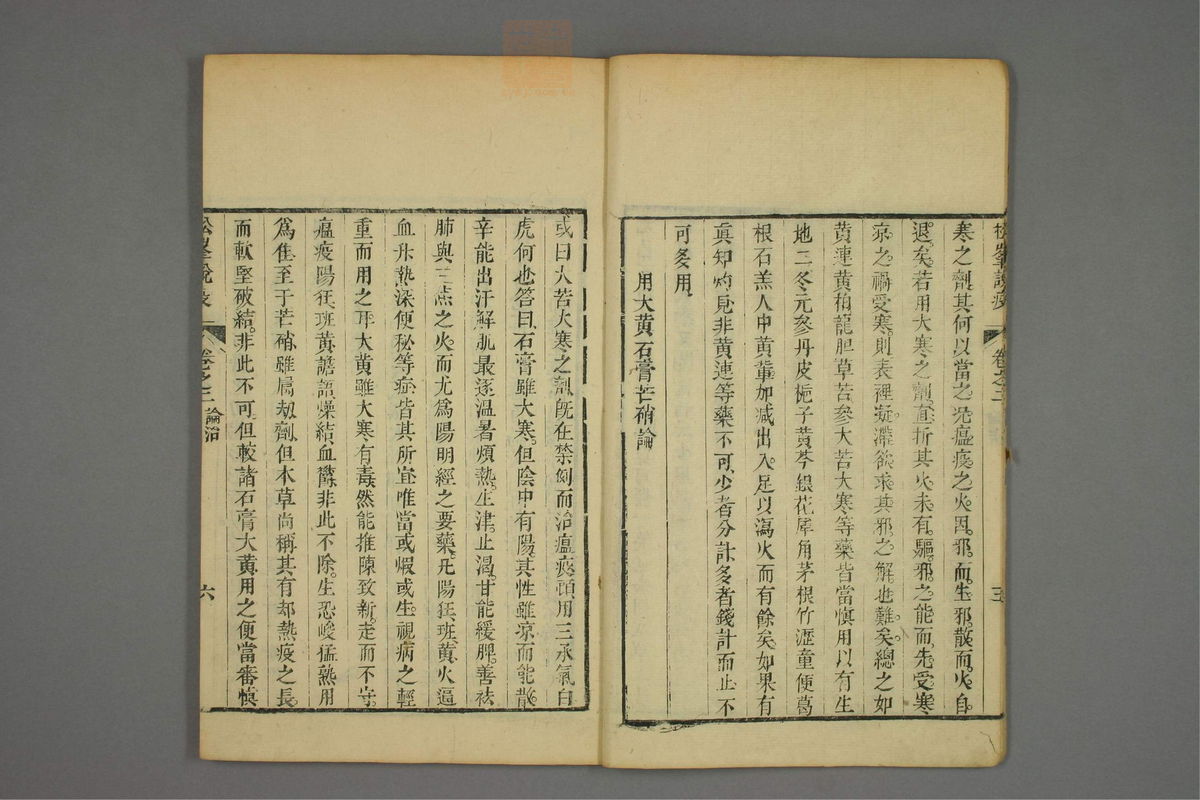 松峯說疫
卷之二
五
寒之劑其何以當之况瘟疫之火因邪而生邪散而火自
退矣若用大寒之劑直折其火未有驅邪之能而先受寒
凉之禍受寒則表裡凝滯欲求其邪之解也難矣總之如
黃連黃柏龍胆草苦參大苦大寒等藥皆當慎用以有生
地二冬元參丹皮梔子黃芩銀花犀角茅根竹瀝童便葛
根石羔人中黃輩加减出入足以瀉火而有餘矣如果有
眞知灼見非黃連等藥不可少者分計多者錢計而止不
可多用
用大黃石膏芒硝論
或曰大苦大寒之劑旣在禁例而治瘟疫頭用三承氣白
虎何也答曰石膏雖大寒但陰中有陽其性雖凉而能散
辛能出汗解肌最逐溫暑煩熱生津止渴甘能緩脾善祛
肺與三焦之火而尤爲陽明經之要藥凡陽狂斑黃火逼
血升熱深便秘等症皆其所宜唯當或煆或生視病之輕
重而用之耳大黃雖大寒有毒然能推陳致新走而不守
瘟疫陽狂斑黃譫語燥結血鬱非此不除生恐峻猛熟用
爲佳至于芒硝雖屬劫劑但本草尚稱其有却熱疫之長
而軟堅破結非此不可但較諸石膏大黃用之便當審慎
松峯說疫
卷之二
論治
六